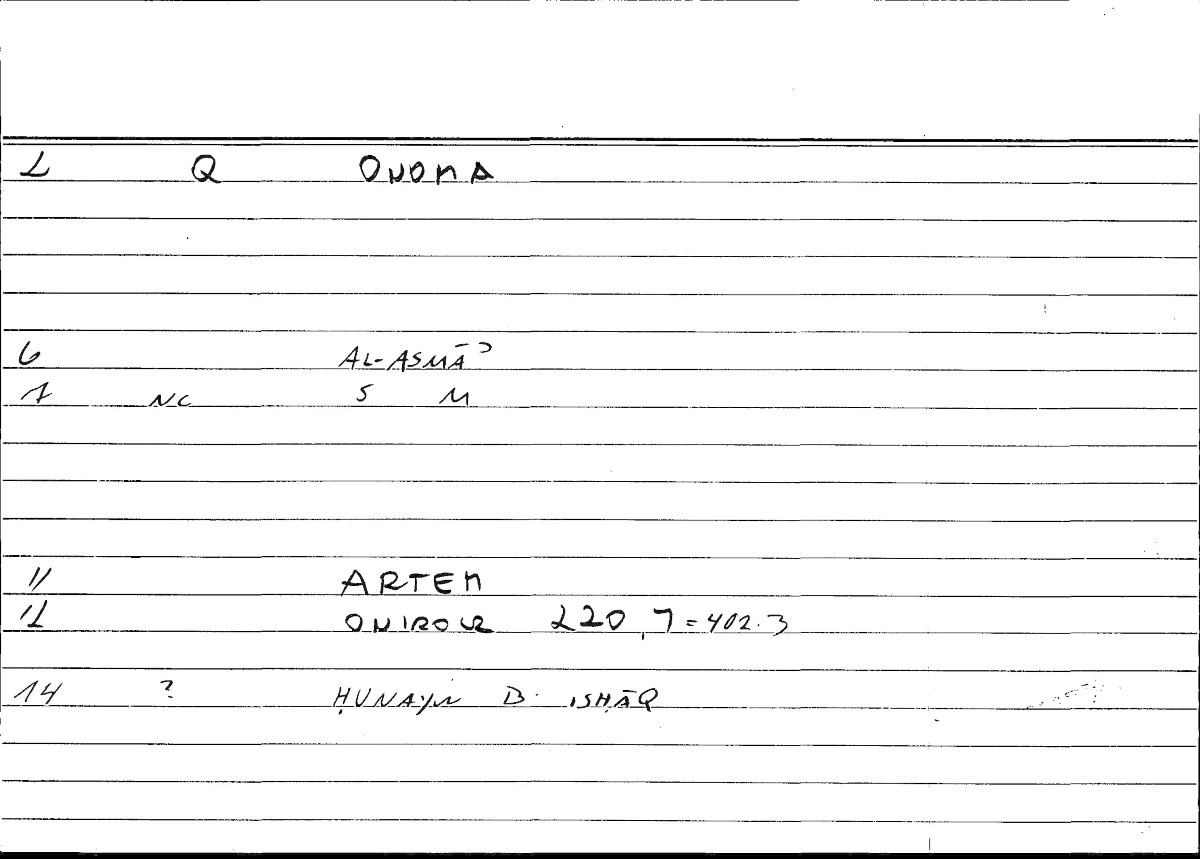 2 Q ONOMA
6 AL-ASMĀʾ
7 NC S M
11 ARTEM
12 ONIROCR 220,7=402.3
14 ? ḤUNAYN B. ISḤĀQ